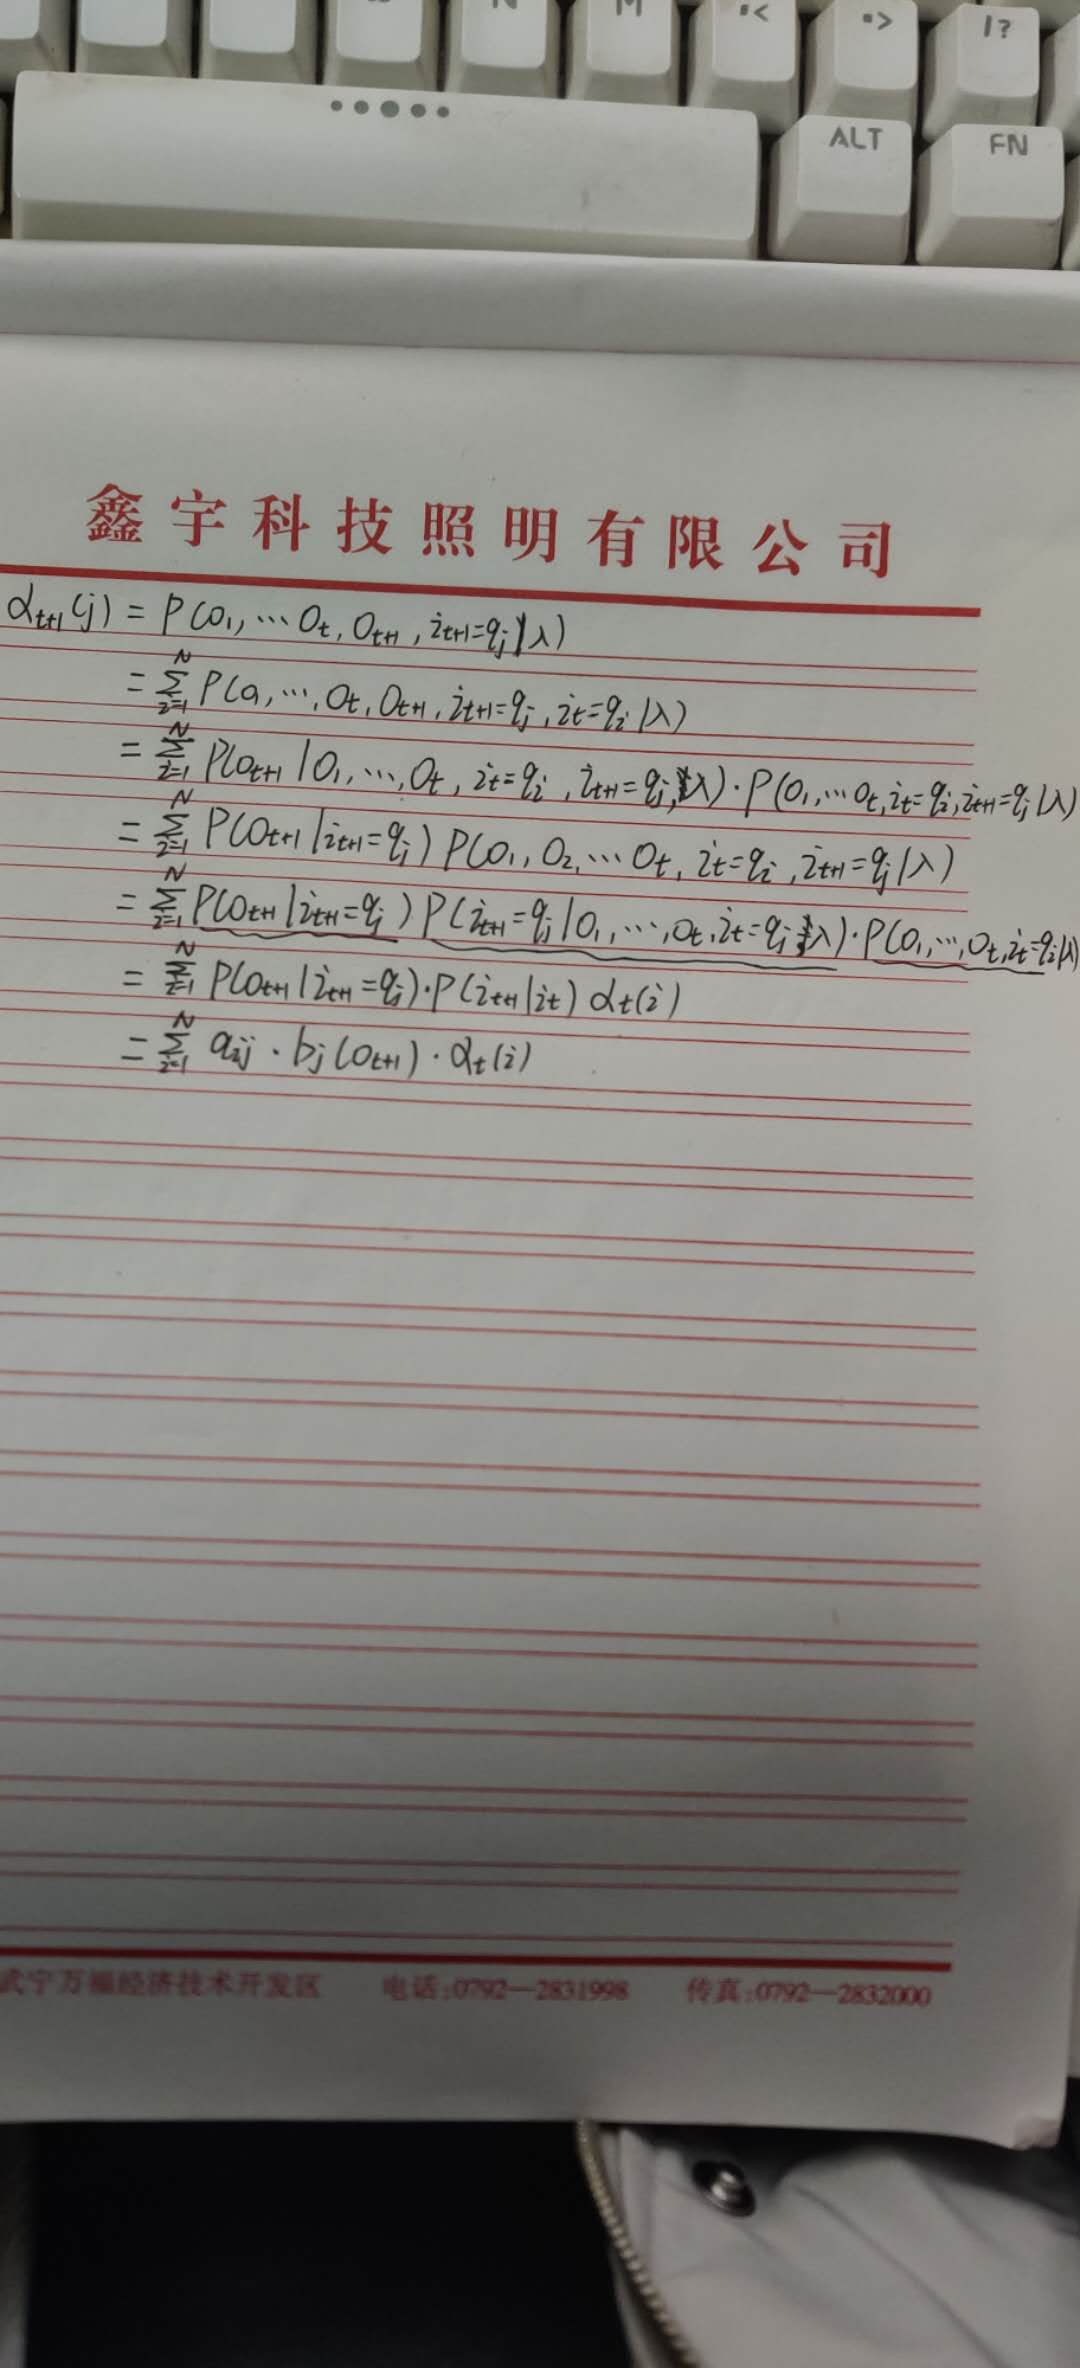 N M < > | ?
ALT FN
鑫宇科技照明有限公司
α_{t+1}(j) = P(O_1, ⋯ O_t, O_{t+1}, i_{t+1}=q_j|λ)
= ∑_{i=1}^{N} P(O_1, ⋯, O_t, O_{t+1}, i_{t+1}=q_j, i_t=q_i|λ)
= ∑_{i=1}^{N} P(O_{t+1}|O_1, ⋯, O_t, i_t=q_i, i_{t+1}=q_j, λ)·P(O_1, ⋯ O_t, i_t=q_i, i_{t+1}=q_j|λ)
= ∑_{i=1}^{N} P(O_{t+1}|i_{t+1}=q_j) P(O_1, O_2, ⋯ O_t, i_t=q_i, i_{t+1}=q_j|λ)
= ∑_{i=1}^{N} P(O_{t+1}|i_{t+1}=q_j) P(i_{t+1}=q_j|O_1, ⋯, O_t, i_t=q_i, λ)·P(O_1, ⋯, O_t, i_t=q_i|λ)
= ∑_{i=1}^{N} P(O_{t+1}|i_{t+1}=q_j)·P(i_{t+1}|i_t) α_t(i)
= ∑_{i=1}^{N} a_{ij}·b_j(O_{t+1})·α_t(i)
武宁万福经济技术开发区 电话:0792—2831998 传真:0792—2832000